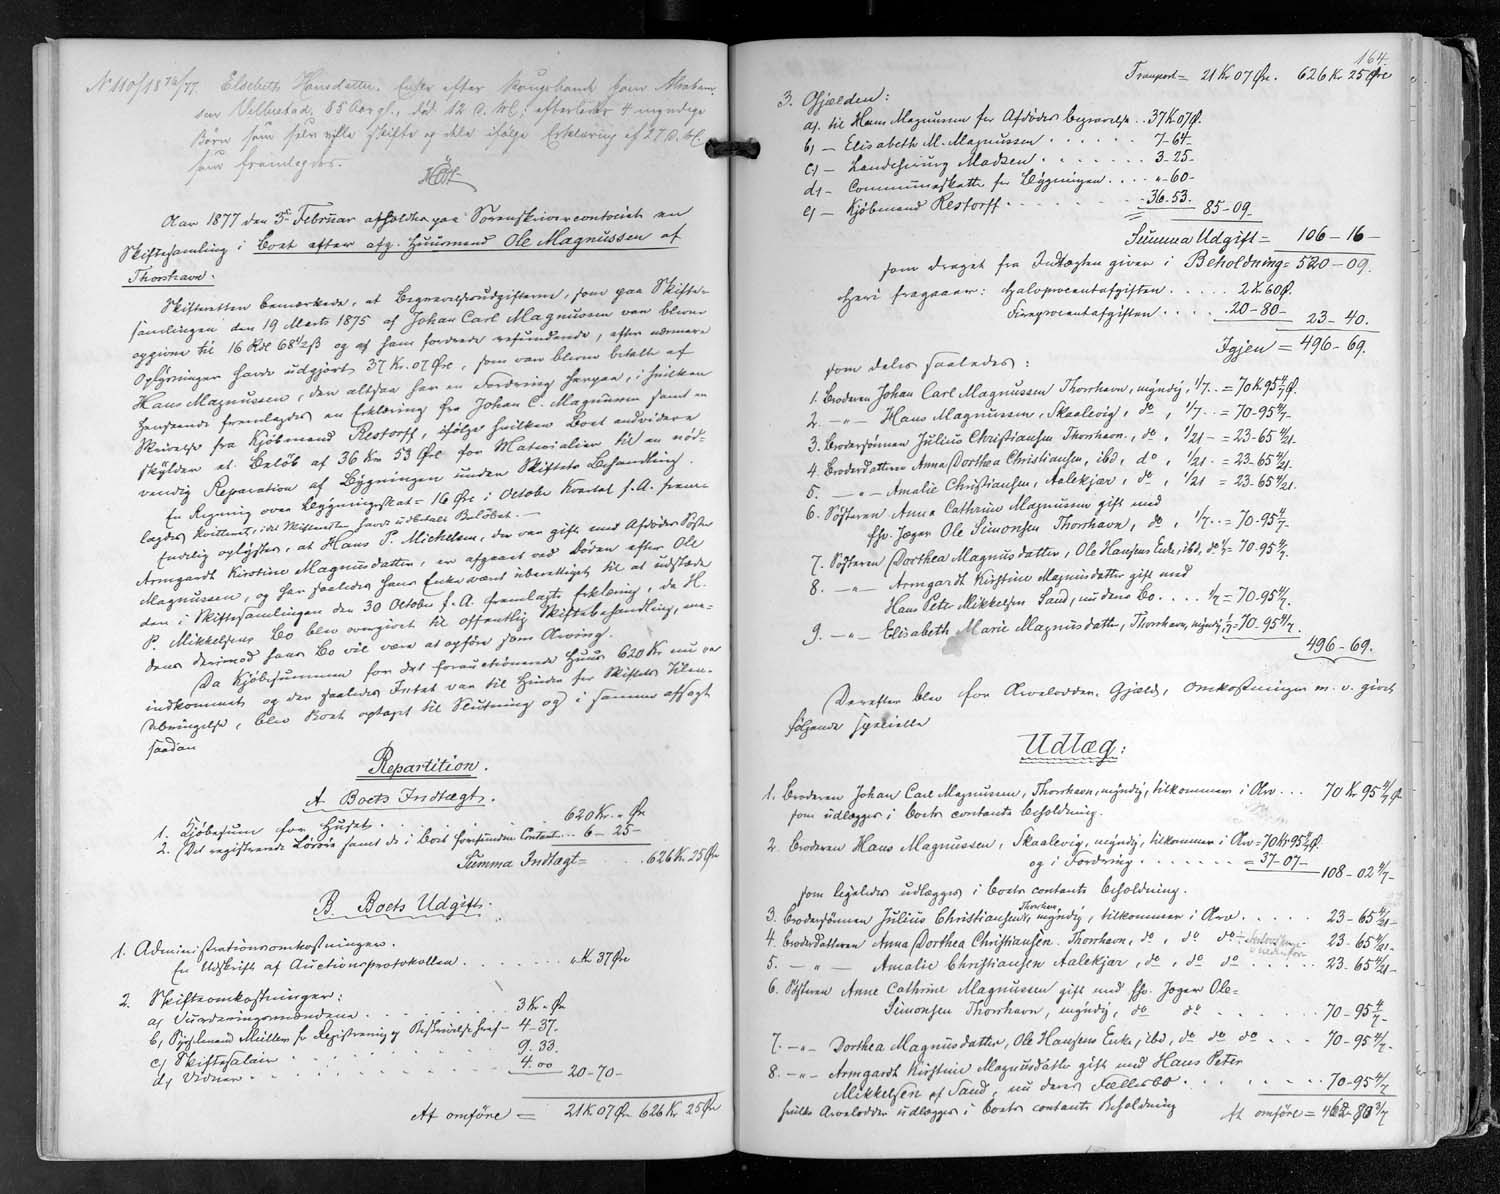 No 110/18 76/77. Elsebeth Hansdatter, Enke efter Kongsbonde Joen Abraham-
sen Velbestad, 85 Aar gl., død 12 d. M.; efterlader 4 myndige
Børn som selv ville skifte og dele ifølge Erklæring af 27 d. M.
som fremlagdes.
Aar 1877 den 3die Februar afholdtes paa Sorenskrivercontoiret en
Skiftesamling i Boet efter afg. Huusmand Ole Magnussen af
Thorshavn.
Skifteretten bemærkede, at Begravelsesudgifterne, som paa Skifte-
samlingen den 19 Marts 1875 af Johan Carl Magnussen vare blevne
opgivne til 16 Rdl 68½ ß og af ham fordrede refunderede, efter nærmere
Oplysninger havde udgjort 37 Kr. 07 Øre, som vare blevne betalte af
Hans Magnussen, der altsaa har en Fordring herpaa, i hvilken
Henseende fremlagdes en Erklæring fra Johan C. Magnussen samt en
Skrivelse fra Kjøbmand Restorff, ifølge hvilken Boet endvidere
skylder et Beløb af 36 Kr 53 Øre for Materialier til en nød-
vendig Reparation af Bygningen under Skiftets Behandling.
En Regning over Bygningsskat = 16 Øre i October Kvartal f. A. frem-
lagdes kvitteret, idet Skifteretten havde udbetalt Beløbet. —
Endelig oplystes, at Hans P. Mickelsen, der var gift med Afdødes Søster
Armgardt Kirstine Magnusdatter, er afgaaet ved Døden efter Ole
Magnussen, og har saaledes hans Enke været uberettiget til at udstede
den i Skiftesamlingen den 30 October f. A. fremlagte Erklæring, da H.
P. Mikkelsens Bo blev overgivet til offentlig Skiftebehandling, me-
dens derimod hans Bo vil være at opføre som Arving.
Da Kjøbesummen for det forauctionerede Huus 620 Kr nu var
indkommet og der saaledes Intet var til Hinder for Skiftets Tilen-
debringelse, blev Boet optaget til Slutning og i samme afsagt
saadan
Repartition.
A. Boets Indtægt.
1. Kjøbesum for Huset . . . 620 Kr. „ Øre
2. Det registrerede Løsøre samt de i Boet forefundne Contant . . . 6 - 25 -
Summa Indtægt = . . 626 Kr 25 Øre
B. Boets Udgift.
1. Administrationsomkostninger.
En Udskrift af Auctionsprotokollen . . . . . . „ Kr 37 Øre
2. Skifteomkostninger:
a) Vurderingsmændene . . . . . 3 Kr „ Øre
b) Sysselmand Müller for Registrering og Bestyrelse heraf - 4-37.
c) Skiftesalair . . . . . 9. 33.
d) Vidner . . . . . 4. 00 20-70-
At omføre = 21 K 07 Øre 626 Kr 25 Øre
164.
Transport = 21 Kr 07 Øre. 626 Kr 25 Øre
3. Gjælden:
a) til Hans Magnussen for Afdødes Begravelse . . 37 K 07 Ø.
b) — Elisabeth M. Magnussen . . . . . 7-64-
c) — Landchirurg Madsen . . . . . 3-25-
d) — Communeskatte for Bygningen . . . . „-60-
e) — Kjøbmand Restorff . . . . . 36.53. 85-09.
Summa Udgift = 106-16-
som draget fra Indtægten giver i Beholdning = 520-09.
Heri fragaaer: Halvprocentafgiften . . . . . 2 K 60 Ø.
Fireprocentafgiften . . . . 20-80- 23-40.
Igjen = 496-69.
som deles saaledes:
1. Broderen Johan Carl Magnussen Thorshavn, myndig, 1/7 . . = 70 K 95 4/7 Ø.
2. —„— Hans Magnussen, Skaalevig, do, 1/7 . . = 70-95 4/7-
3. Brodersønnen Julius Christiansen Thorshavn, do, 1/21 - = 23-65 4/21.
4. Broderdatteren Anna Dorthea Christiansen, ibd, do, 1/21 . = 23-65 4/21.
5. —„— Amalie Christiansen, Aalekjær, do, 1/21 = 23-65 4/21.
6. Søsteren Anna Cathrine Magnussen gift med
fhv. Jæger Ole Simonsen Thorshavn, do, 1/7 . . = 70-95 4/7-
7. Søsteren Dorthea Magnusdatter, Ole Hansens Enke, ibd, do 1/7 = 70-95 4/7.
8. —„— Armgardt Kirstine Magnusdatter gift med
Hans Peter Mikkelsen Sand, nu deres Bo . . . . 1/7 = 70-95 4/7.
9. —„— Elisabeth Marie Magnusdatter, Thorshavn, myndig, 1/7 = 70-95 4/7.
496-69.
Derefter blev for Arvelodder, Gjæld, Omkostninger m. v. gjort
følgende specielle
Udlæg:
1. Broderen Johan Carl Magnussen, Thorshavn, myndig, tilkommer i Arv . . . 70 Kr 95 4/7 Ø
som udlægges i Boets contante Beholdning.
2. Broderen Hans Magnussen, Skaalevig, myndig, tilkommer i Arv = 70 Kr 95 4/7 Ø.
og i Fordring . . . . . . = 37-07- 108-02 4/7-
som ligeledes udlægges i Boets contante Beholdning.
3. Brodersønnen Julius Christiansen, Thorshavn, myndig, tilkommer i Arv . . . . . 23-65 4/21-
4. Broderdatteren Anna Dorthea Christiansen. Thorshavn, do, do do 23-65 4/21-
5. —„— Amalie Christiansen Aalekjær, do, do do . . . . . 23-65 4/21-
6. Søsteren Anne Cathrine Magnussen gift med fhv. Jæger Ole
Simonsen Thorshavn, myndig, do do . . . . . 70-95 4/7-
7. —„— Dorthea Magnusdatter, Ole Hansens Enke, ibd, do do do . . . 70-95 4/7-
8. —„— Armgardt Kirstine Magnusdatter gift med Hans Peter
Mikkelsen af Sand, nu deres Fællesbo . . . . . . . 70-95 4/7
hvilke Arvelodder udlægges i Boets contante Beholdning At omføre = 462-80 3/7